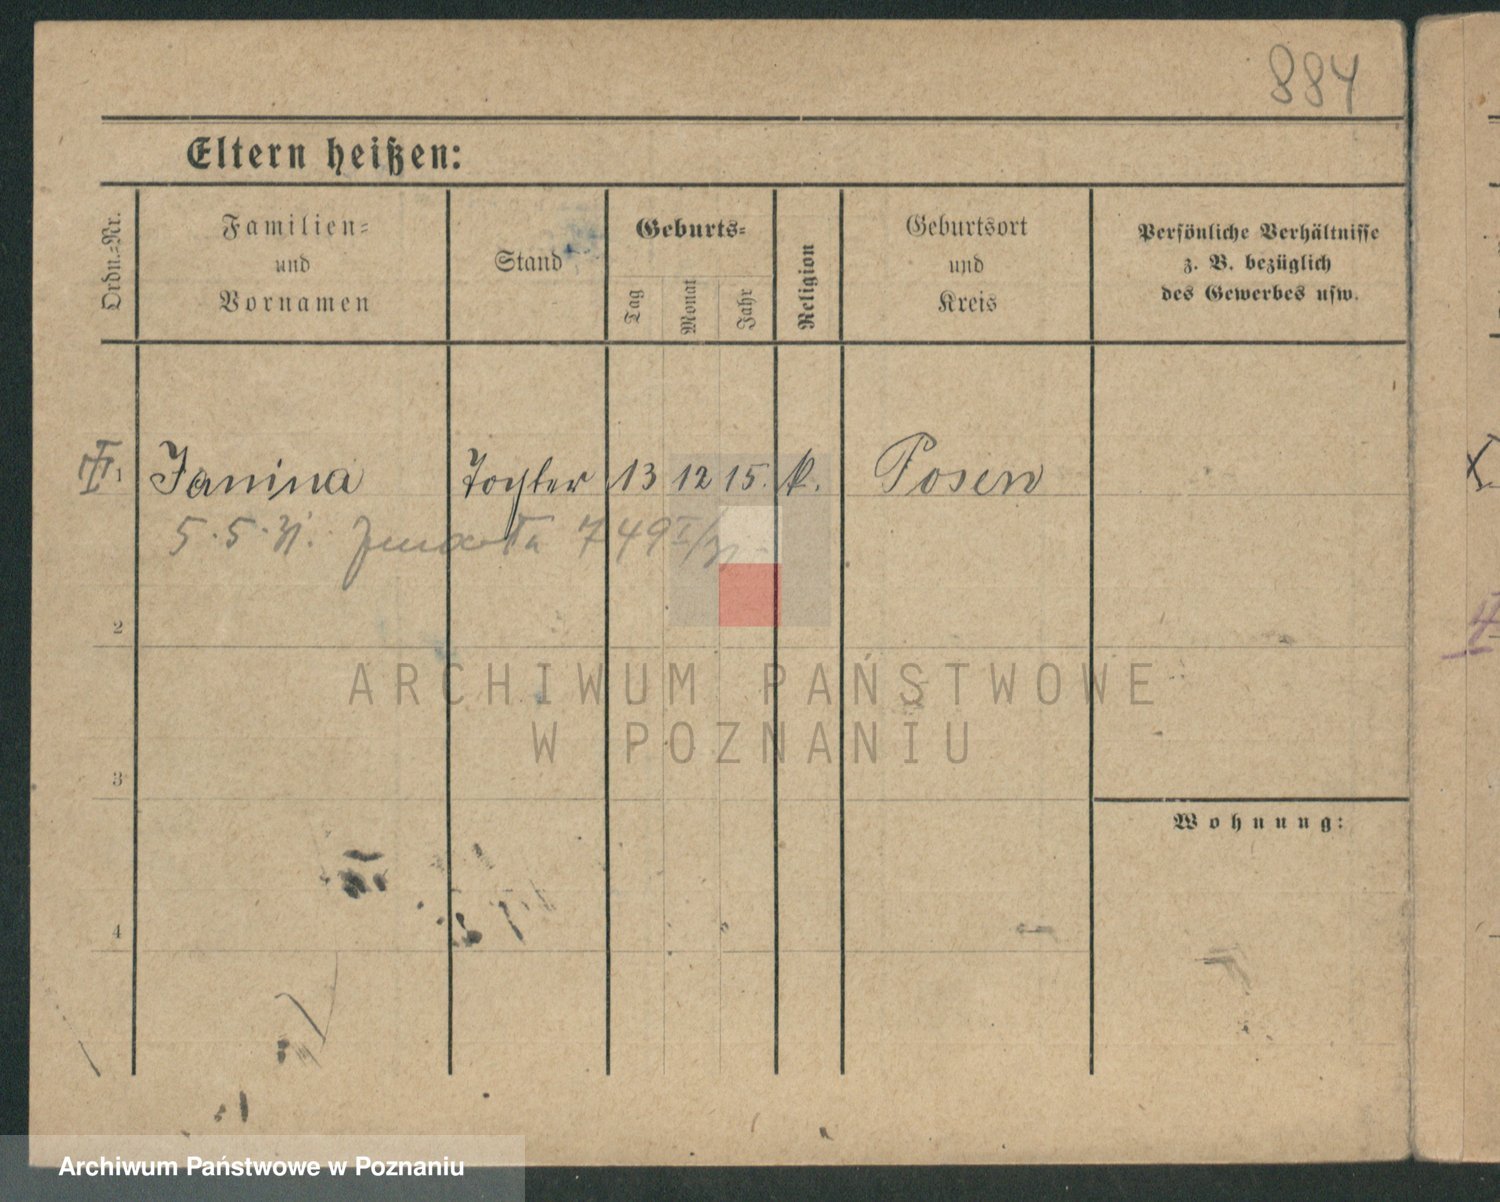 884
Eltern heißen:
Ordn.-Nr.
Familien-
und
Vornamen
Stand
Geburts-
Tag
Monat
Jahr
Religion
Geburtsort
und
Kreis
Persönliche Verhältnisse
z. B. bezüglich
des Gewerbes usw.
1 Janina Tochter 13 12 15. k. Posen
5.5.31. zmarła 749
2
ARCHIWUM PAŃSTWOWE
W POZNANIU
3
Wohnung:
4
Archiwum Państwowe w Poznaniu